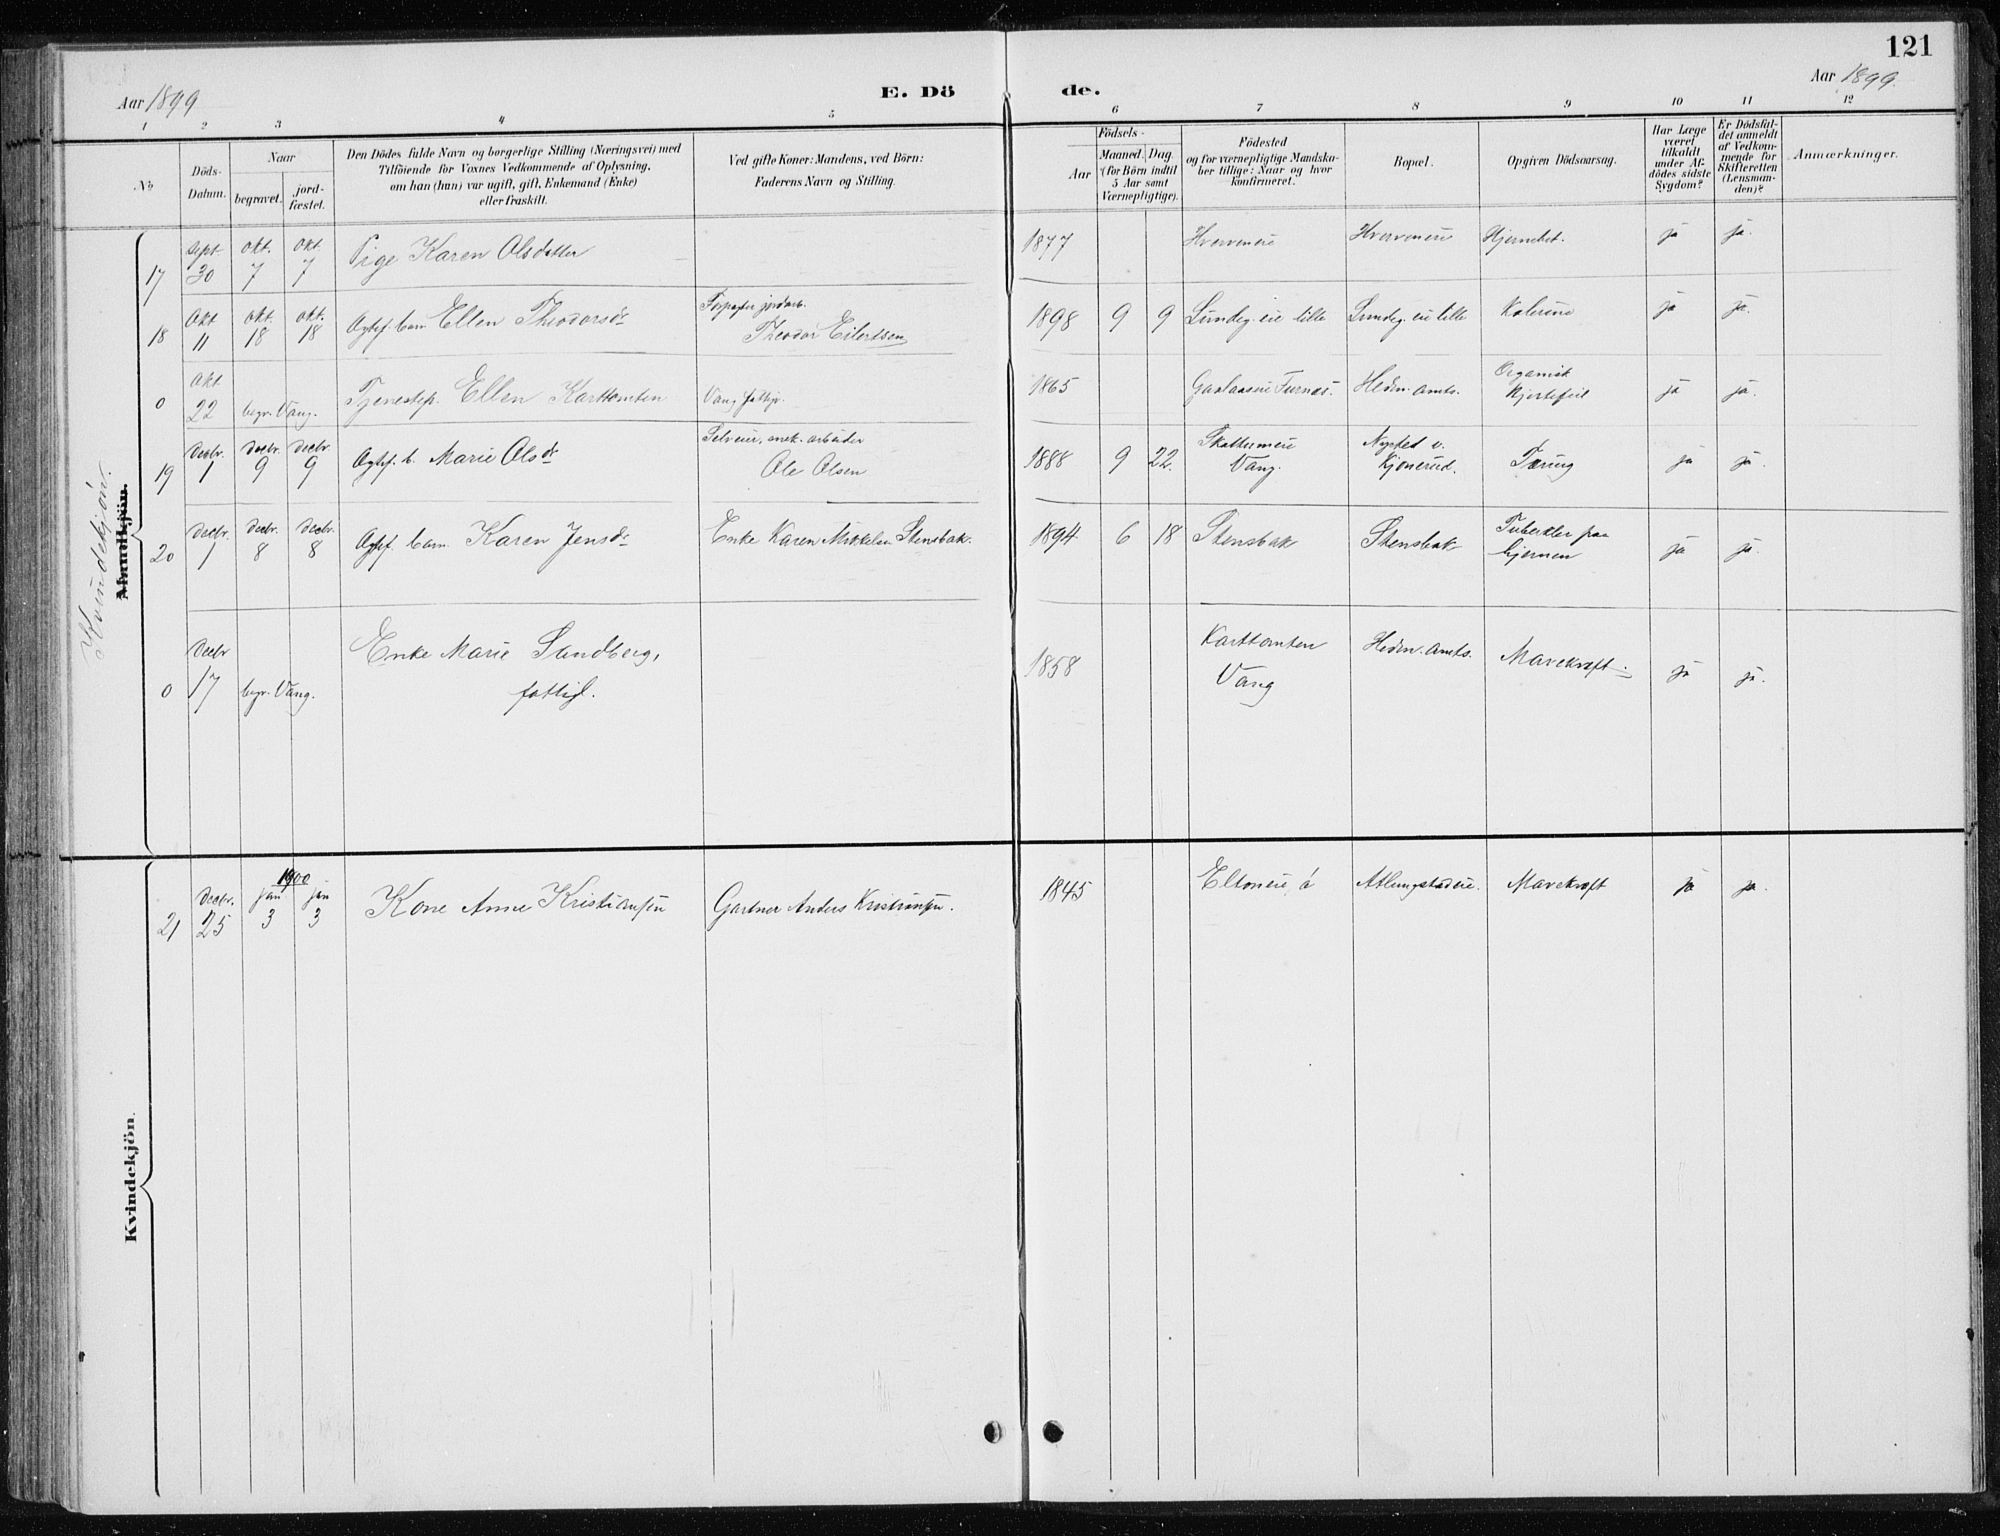 121
Aar 1899
E. Dö
de.
Aar 1899.
1 2 3 4 5 6 7 8 9 10 11 12
No
Döds-
Datum.
Naar
begravet.
jord-
fæstet.
Den Dödes fulde Navn og borgerlige Stilling (Næringsvei) med
Tilföiende for Voxnes Vedkommende af Oplysning,
om han (hun) var ugift, gift, Enkemand (Enke)
eller fraskilt.
Ved gifte Koner: Mandens, ved Börn:
Faderens Navn og Stilling.
Födsels-
Aar
Maaned. Dag.
(for Börn indtil
5 Aar samt
Værnepligtige).
Födested
og for værnepligtige Mandska-
ber tillige: Naar og hvor
konfirmeret.
Bopæl.
Opgiven Dödsaarsag.
Har Læge
været
tilkaldt
under Af-
dödes sidste
Sygdom?
Er Dödsfal-
det anmeldt
af Vedkom-
mende for
Skifteretten
(Lensman-
den)?
Anmærkninger.
Kvindekjön.
Mandkjön.
17 Sept. 30 Okt. 7 Okt. 7 Pige Karen Olsdatter 1877 ja ja.
18 Okt 11 Okt. 18 Okt. 18 Ægtef. barn Ellen Theodorsdr
Theodor Eilertsen 1898 9 9 Lundeg. eie lille Lundeg. eie lille Kolerine ja ja.
0 Okt 22 begr. Vang. Tjenestep. Ellen Karttomten Vang 1865 Furnæs. Hedm. amts. Organisk
Hjertefeil ja ja.
19 Decbr. 1 Decbr. 9 Decbr. 9 Ægtef. b. Marie Olsdr Selveier, arbeider
Ole Olsen 1888 9 22. Vang. Nysted v.
Kjonerud. Tæring ja ja.
20 Decbr. 1 Decbr. 8 Decbr. 8 Ægtef. barn. Karen Jensdr Enke Karen Mikkelsen Stensbak. 1894 6 18 Stensbak Stensbak Tuberkler paa
hjernen ja ja.
0 Decbr 17 begr. Vang. Enke Marie Sandberg,
fattigl. 1858 Karttomten
Vang Hedm. amts. Mavekræft. ja ja.
Kvindekjön.
1900
21 Decbr. 25 Jan 3 Jan 3 Kone Anne Kristiansen Gartner Anders Kristiansen. 1845 Eltoneie Atlungstadeie. Mavekræft ja ja.